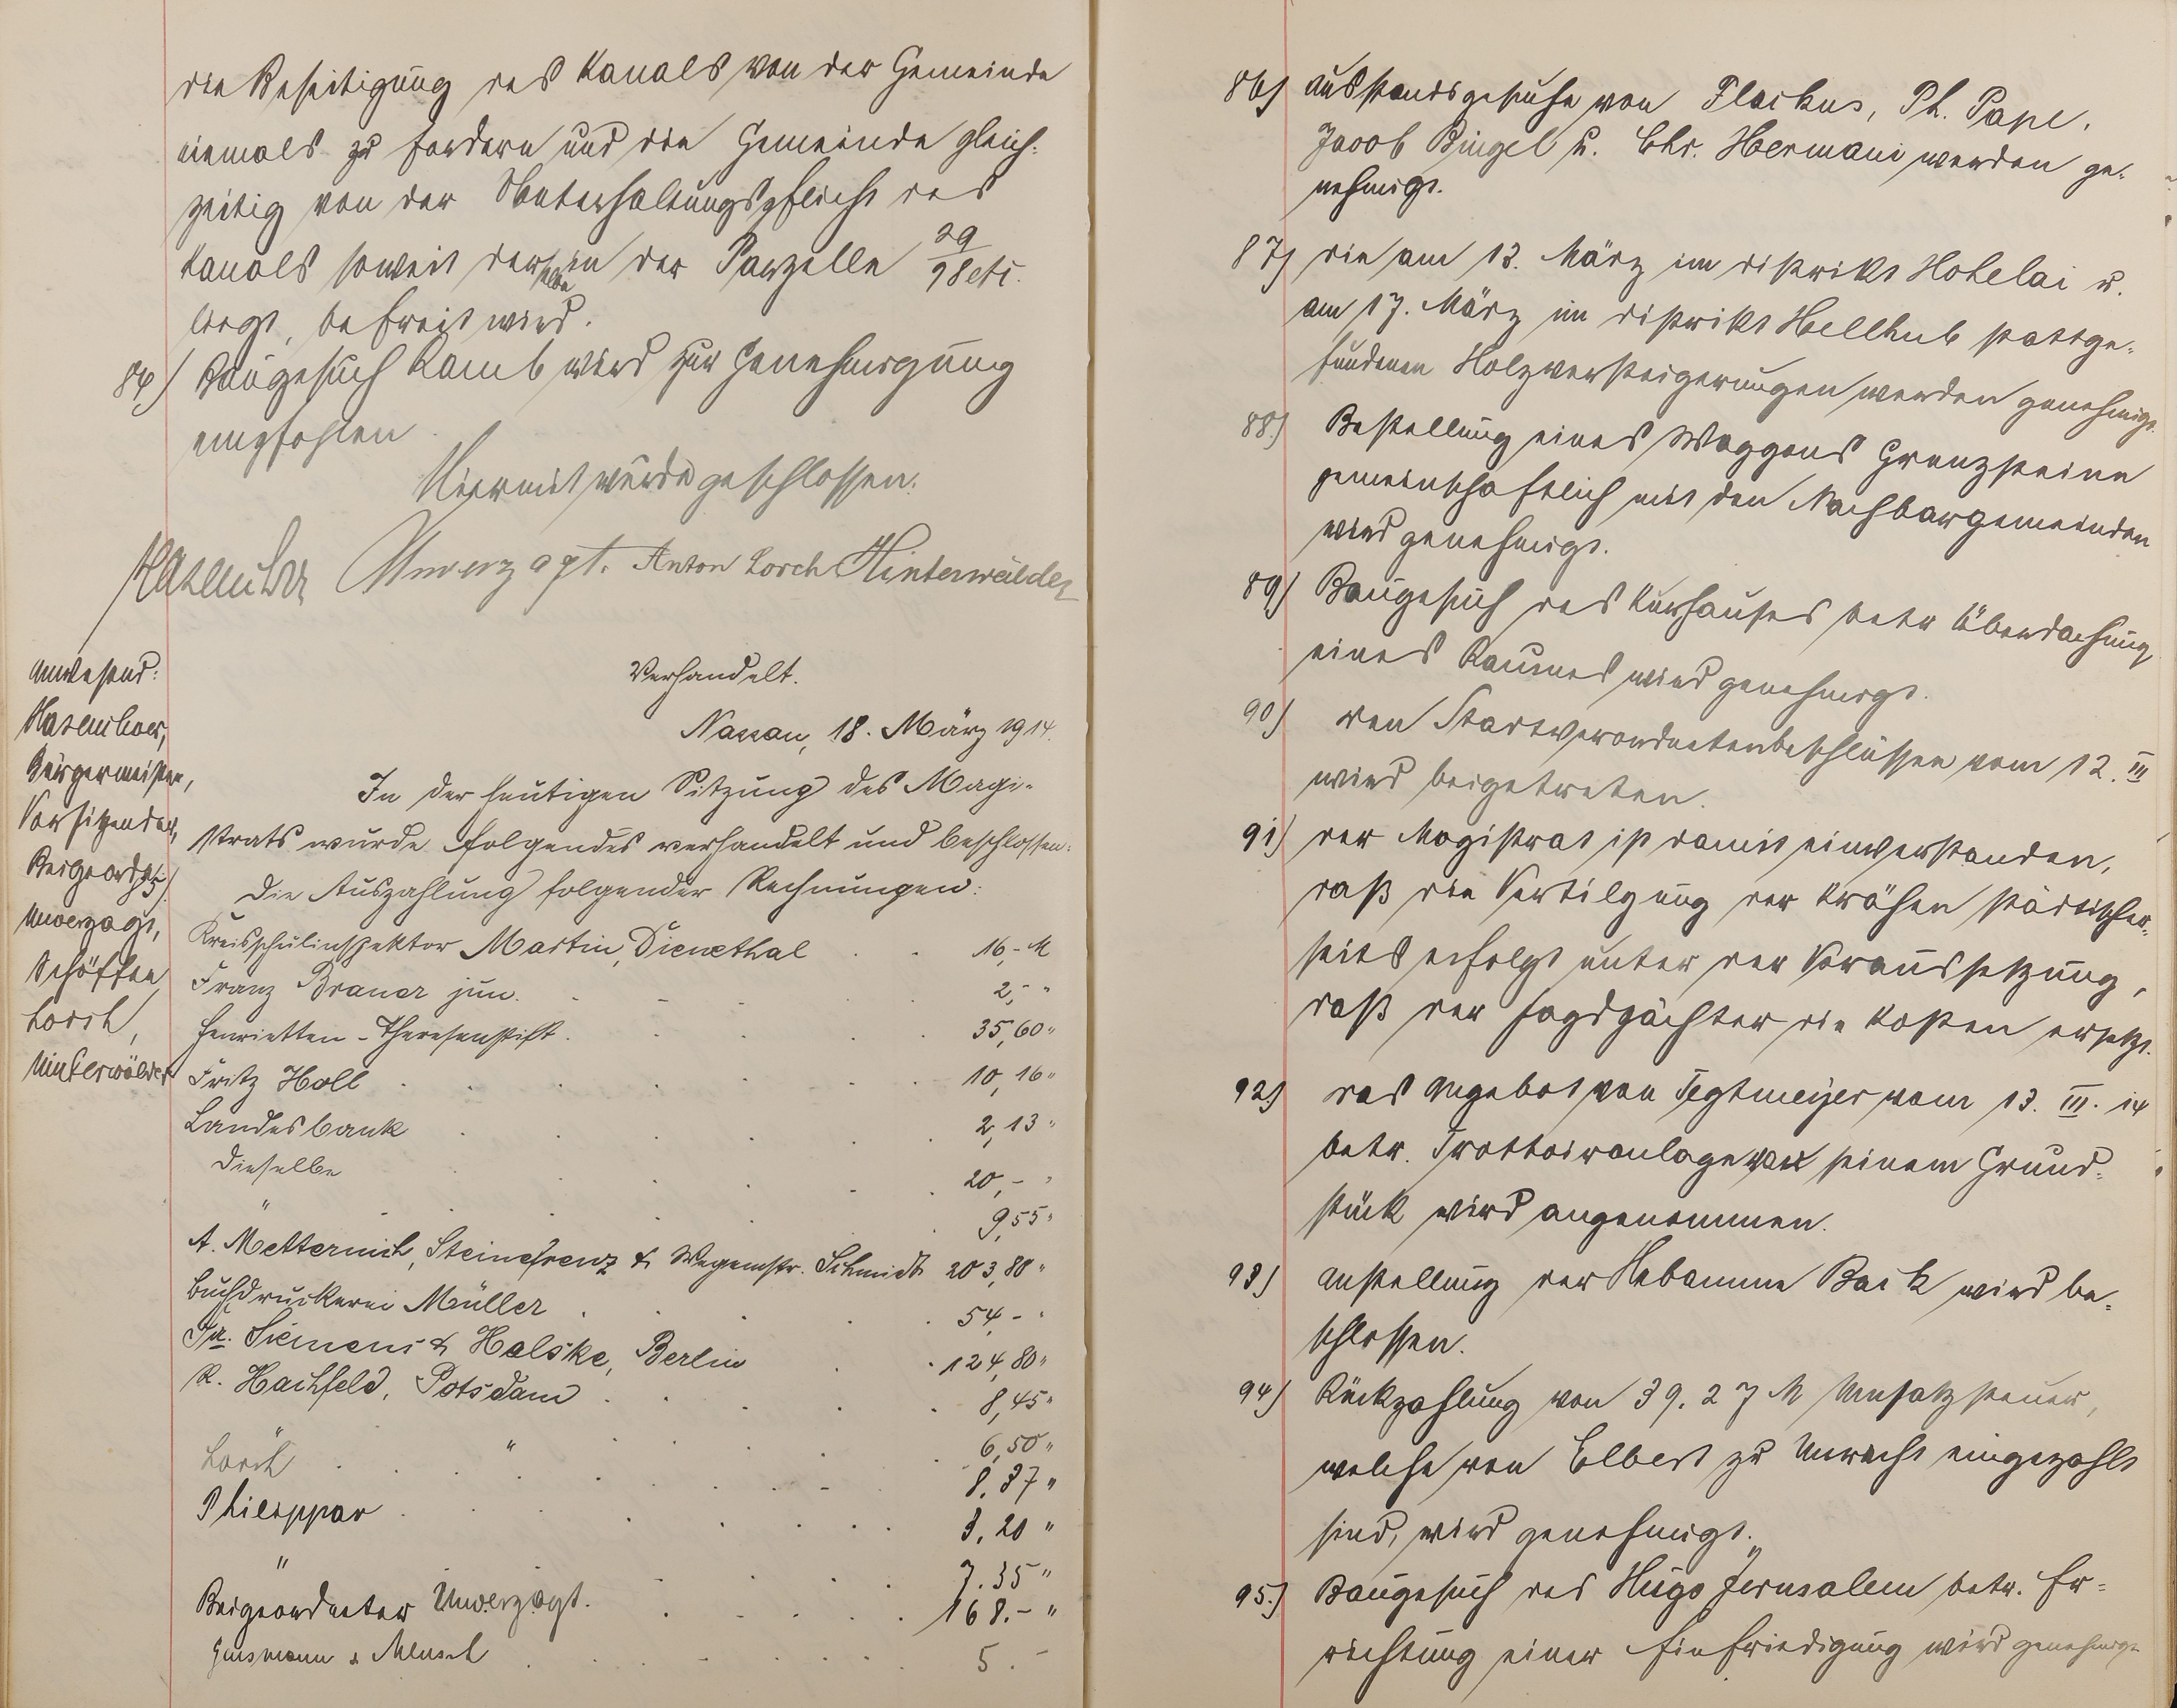 die Beseitigung des Kanals von der Gemeinde
niemals zu fordern und die Gemeinde gleich-
zeitig von der Unterhaltungspflicht des
Kanals soweit derselbe in der Parzelle 29/98 etc.
liegt, befreit wird.
84) Baugesuch Kamb wird zur Genehmigung
empfohlen.
Hiermit wurde geschlossen.
Hasenclever Unverzagt. Anton Lorch Hinterwälder
Anwesend:
Hasenclever,
Bürgermeister,
Vorsitzender,
Beigeordn.
Unverzagt,
Schöffen
Lorch,
Hinterwälder
Verhandelt.
Nassau, 18. März 1914.
In der heutigen Sitzung des Magi-
strats wurde folgendes verhandelt und beschlossen:
85) Die Auszahlung folgender Rechnungen:
Kreisschulinspektor Martin, Dienethal 16,- M
Franz Braner jun. 2,- "
Henrietten-Theresenstift. 35,60 "
Fritz Holl 10,16 "
Landesbank 2,13 "
Dieselbe 20,- "
" 9,55 "
A. Metternich, Steinefrenz & Wegemstr. Schmidt 203,80 "
Buchdruckerei Müller 54,- "
Fa. Siemens & Halske, Berlin 124,80 "
R. Hachfeld, Potsdam 8,45 "
" 6,50 "
Lorch 8.37 "
Philippar 3.20 "
" 7.35 "
Beigeordneter Unverzagt. 168.- "
Gusmann & Mensch 5.-
86) Ausstandsgesuche von Flackus, Ph. Pape,
Jacob Bingel u. Chr. Hermani werden ge-
nehmigt.
87) die am 13. März im Distrikt Hohelai u.
am 17. März im Distrikt Hellhub stattge-
fundenen Holzversteigerungen werden genehmigt.
88) Bestellung eines Waggons Grenzsteine
gemeinschaftlich mit den Nachbargemeinden
wird genehmigt.
89) Baugesuch des Kurhauses betr Überdachung
eines Raumes wird genehmigt.
90) den Stadtverordnetenbeschlüssen vom 12. III
wird beigetreten.
91) der Magistrat ist damit einverstanden,
daß die Vertilgung der Krähen städtischer-
seits erfolgt unter der Voraussetzung,
daß der Jagdpächter die Kosten ersetzt.
92) das Angebot von Tegtmeijer vom 13. III. 14
betr. Trottoiranlage vor seinem Grund-
stück wird angenommen.
93) Anstellung der Hebamme Back wird be-
schlossen.
94) Rückzahlung von 39.27 M Umsatzsteuer,
welche von Elbert zu Unrecht eingezahlt
sind, wird genehmigt.
95.) Baugesuch des Hugo Jerusalem betr. Er-
richtung einer Einfriedigung wird genehmigt